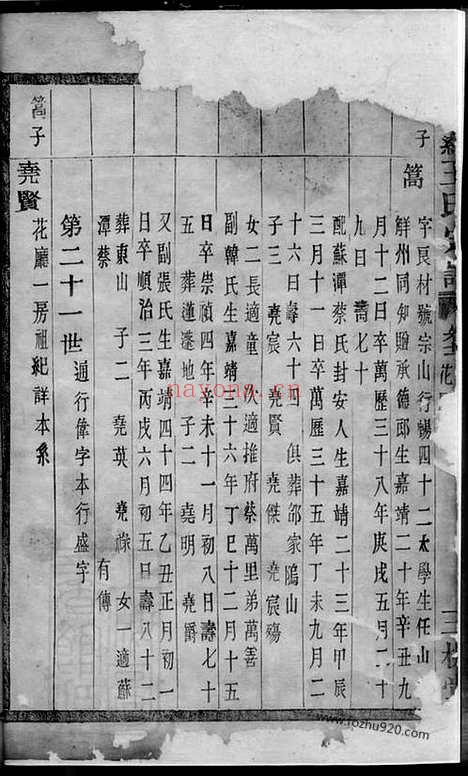 王氏宗譜
三槐堂
子
篙
字良材號宗山行暢四十二太學生任山
解州同知贈承德郎生嘉靖二十年辛丑九
月十二日卒萬歷三十八年庚戌五月二十
九日壽七十
配蘇潭蔡氏封安人生嘉靖二十三年甲辰
三月十一日卒萬歷三十五年丁未九月二
十六日壽六十四俱葬部家隖山
子三 堯宸 堯賢 堯傑 堯宸殤
女二長適童 次適推府蔡萬里弟萬善
副韓氏生嘉靖三十六年丁巳十二月十五
日卒崇禎四年辛未十一月初八日壽七十
五葬蓮蓬地子二 堯明 堯爵
又副張氏生嘉靖四十四年乙丑正月初一
日卒順治三年丙戌六月初五日壽八十二
葬東山 子二 堯英 堯祿 女一適蘇
潭蔡 有傳
第二十一世 通行偉字本行盛字
篙子
堯賢
花廳一房祖紀詳本系
nayona.cn
www.rozhu920.com